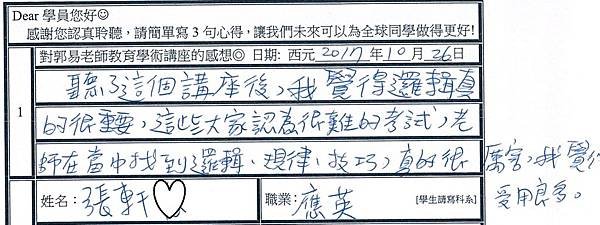 Dear 學員您好☺
感謝您認真聆聽，請簡單寫 3 句心得，讓我們未來可以為全球同學做得更好!
對郭易老師教育學術講座的感想◎ 日期: 西元 2017 年 10 月 26 日
1
聽了這個講座後，我覺得邏輯真
的很重要，這些大家認為很難的考試，老
師在當中找到邏輯、規律、技巧，真的很厲害，我覺得
受用良多。
姓名: 張軒♡ 職業: 應英 [學生請寫科系]